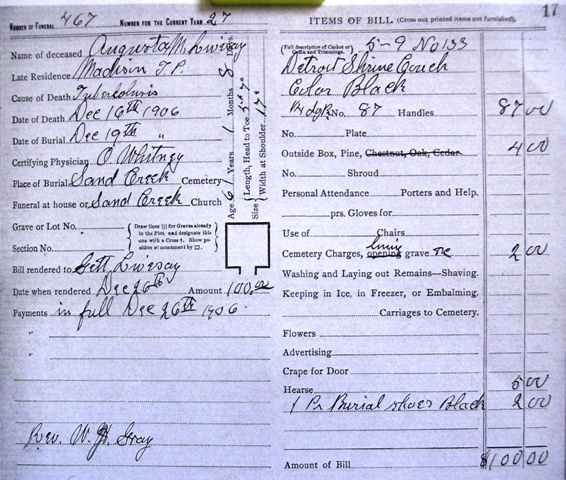 NUMBER OF FUNERAL 467 NUMBER FOR THE CURRENT YEAR 27
Name of deceased Augusta M. Livesay
Late Residence Madison T.P.
Cause of Death Tuberculosis
Date of Death Dec 16th 1906
Date of Burial Dec 19th "
Certifying Physician O. Whitney
Place of Burial Sand Creek Cemetery
Funeral at house or Sand Creek Church
Grave or Lot No.
Section No.
Draw lines ||| for Graves already in the Plot and designate this one with a Cross †. Show position of monument by □.
Bill rendered to Gett Livesay
Date when rendered Dec 26th Amount 100.00
Payments in full Dec 26th 1906.
"
"
Rev. W. H. Gray
Age 61 Years 1 Months 8 Days
Size Length, Head to Toe 5 ft 7 in
Width at Shoulder 17 in
ITEMS OF BILL (Cross out printed items not furnished). 17
(Full description of Casket or Coffin and Trimmings. 5-9 No 133
Detroit Shrine Couch
Color Black
No. 87 Handles 87 00
No. Plate
Outside Box, Pine, Chestnut, Oak, Cedar 4 00
No. Shroud
Personal Attendance Porters and Help.
prs. Gloves for
Use of Chairs
lining
Cemetery Charges, opening grave 2 00
Washing and Laying out Remains—Shaving.
Keeping in Ice, in Freezer, or Embalming.
Carriages to Cemetery.
Flowers
Advertising
Crape for Door
Hearse 5 00
1 Pr Burial shoes Black 2 00
Amount of Bill $100 00